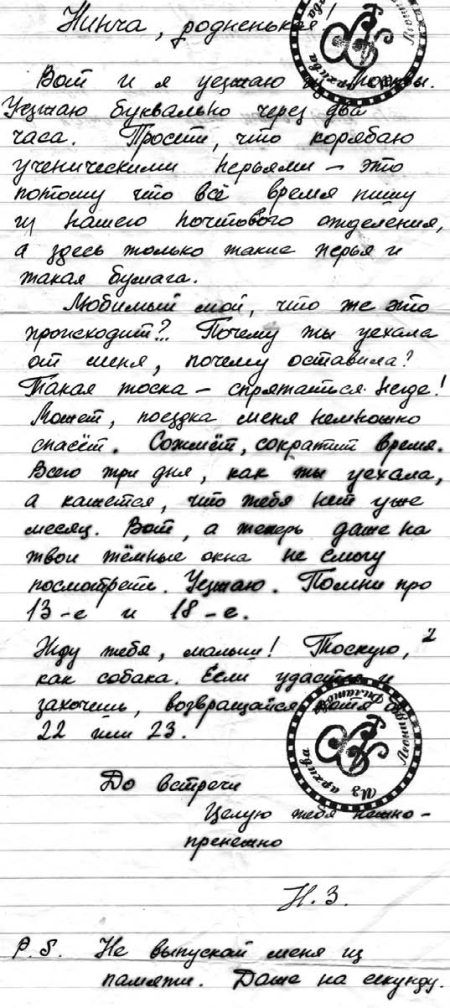 Нинча, родненькая!
Вот и я уезжаю из Москвы.
Уезжаю буквально через два
часа. Прости, что корябаю
ученическими перьями – это
потому что всё время пишу
из нашего почтового отделения,
а здесь только такие перья и
такая бумага.
Любимый мой, что же это
происходит?.. Почему ты уехала
от меня, почему оставила?
Такая тоска – спрятаться негде!
Может, поездка меня немножко
спасёт. Сожмёт, сократит время.
Всего три дня, как ты уехала,
а кажется, что тебя нет уже
месяц. Вот, а теперь даже на
твои тёмные окна не смогу
посмотреть. Уезжаю. Помни про
13-е и 18-е.
Жду тебя, малыш! Тоскую,
как собака. Если удастся и
захочешь, возвращайся хотя
22 или 23.
До встречи
Целую тебя нежно-
пренежно
Н. З.
P.S. Не выпускай меня из
памяти. Даже на секунду.
Из архива
Леонида Филатова